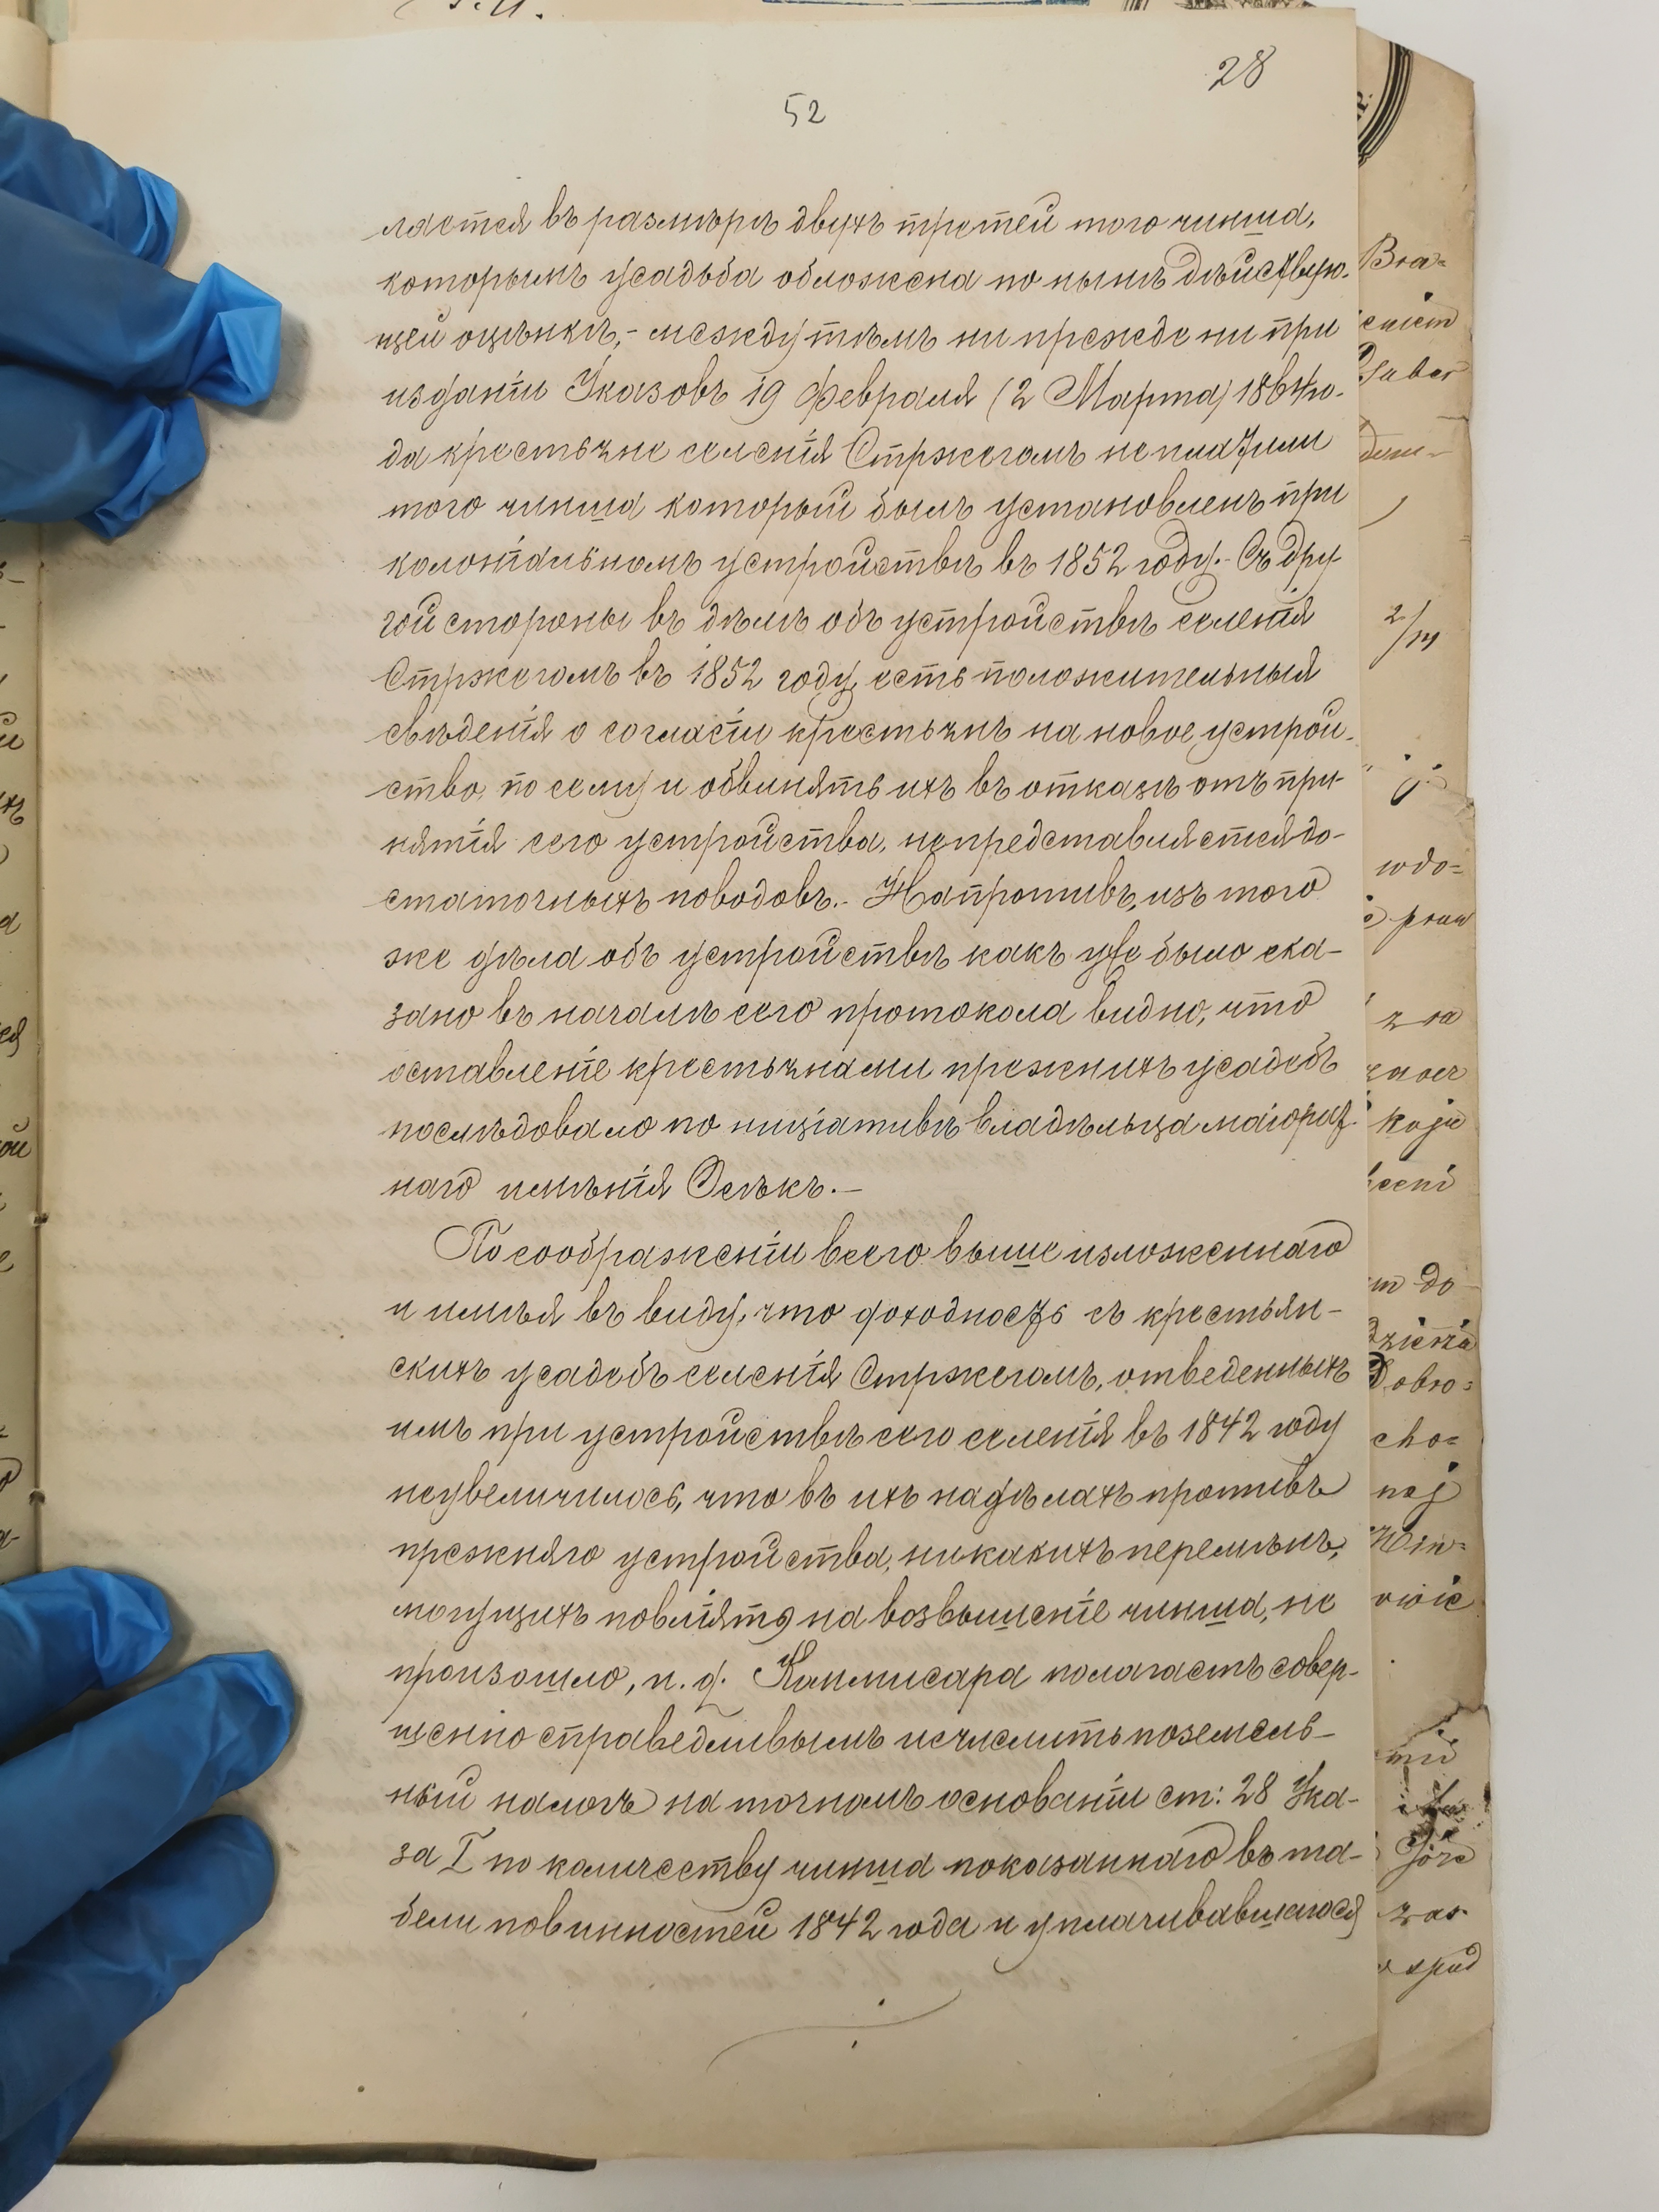 28
52
ляется въ размѣрѣ двухъ третей того чинша,
которымъ усадьба обложена по нынѣ дѣйствую-
щей оцѣнкѣ,- между тѣмъ ни прежде ни при
изданіи Указовъ 19 Февраля (2 Марта) 1864 го-
да крестьяне селенія Стржегомъ не платили
того чинша который былъ установленъ при
колоніальномъ устройствѣ въ 1852 году.- Съ дру-
гой стороны въ дѣлѣ объ устройствѣ селенія
Стржегомъ въ 1852 году, есть положительныя
свѣденія о согласіи крестьянъ на новое устрой-
ство, по сему и обвинять ихъ въ отказѣ отъ при-
нятія сего устройства, не представляется до-
статочныхъ поводовъ.- Напротивъ, изъ того
же дѣла объ устройствѣ какъ уже было ска-
зано въ началѣ сего протокола видно, что
оставленіе крестьянами прежнихъ усадебъ
послѣдовало по ниціативѣ владѣльца маіорат-
наго имѣнія Осѣкъ.-
По соображеніи всего выше изложеннаго
и имѣя въ виду, что доходность съ крестьян-
скихъ усадебъ селенія Стржегомъ, отведенныхъ
имъ при устройствѣ сего селенія въ 1842 году
неувеличилось, что въ ихъ надѣлахъ противъ
прежняго устройства, никакихъ перемѣнъ,
могущихъ повліять на возвышеніе чинша, не
произошло, и. д. Коммисара полагаетъ совер-
шенно справедливымъ исчислить поземель-
ный налогъ на точномъ основаніи ст: 28 Ука-
за I по количеству чинша показаннаго въ та-
бели повинностей 1842 года и уплачивавшагося